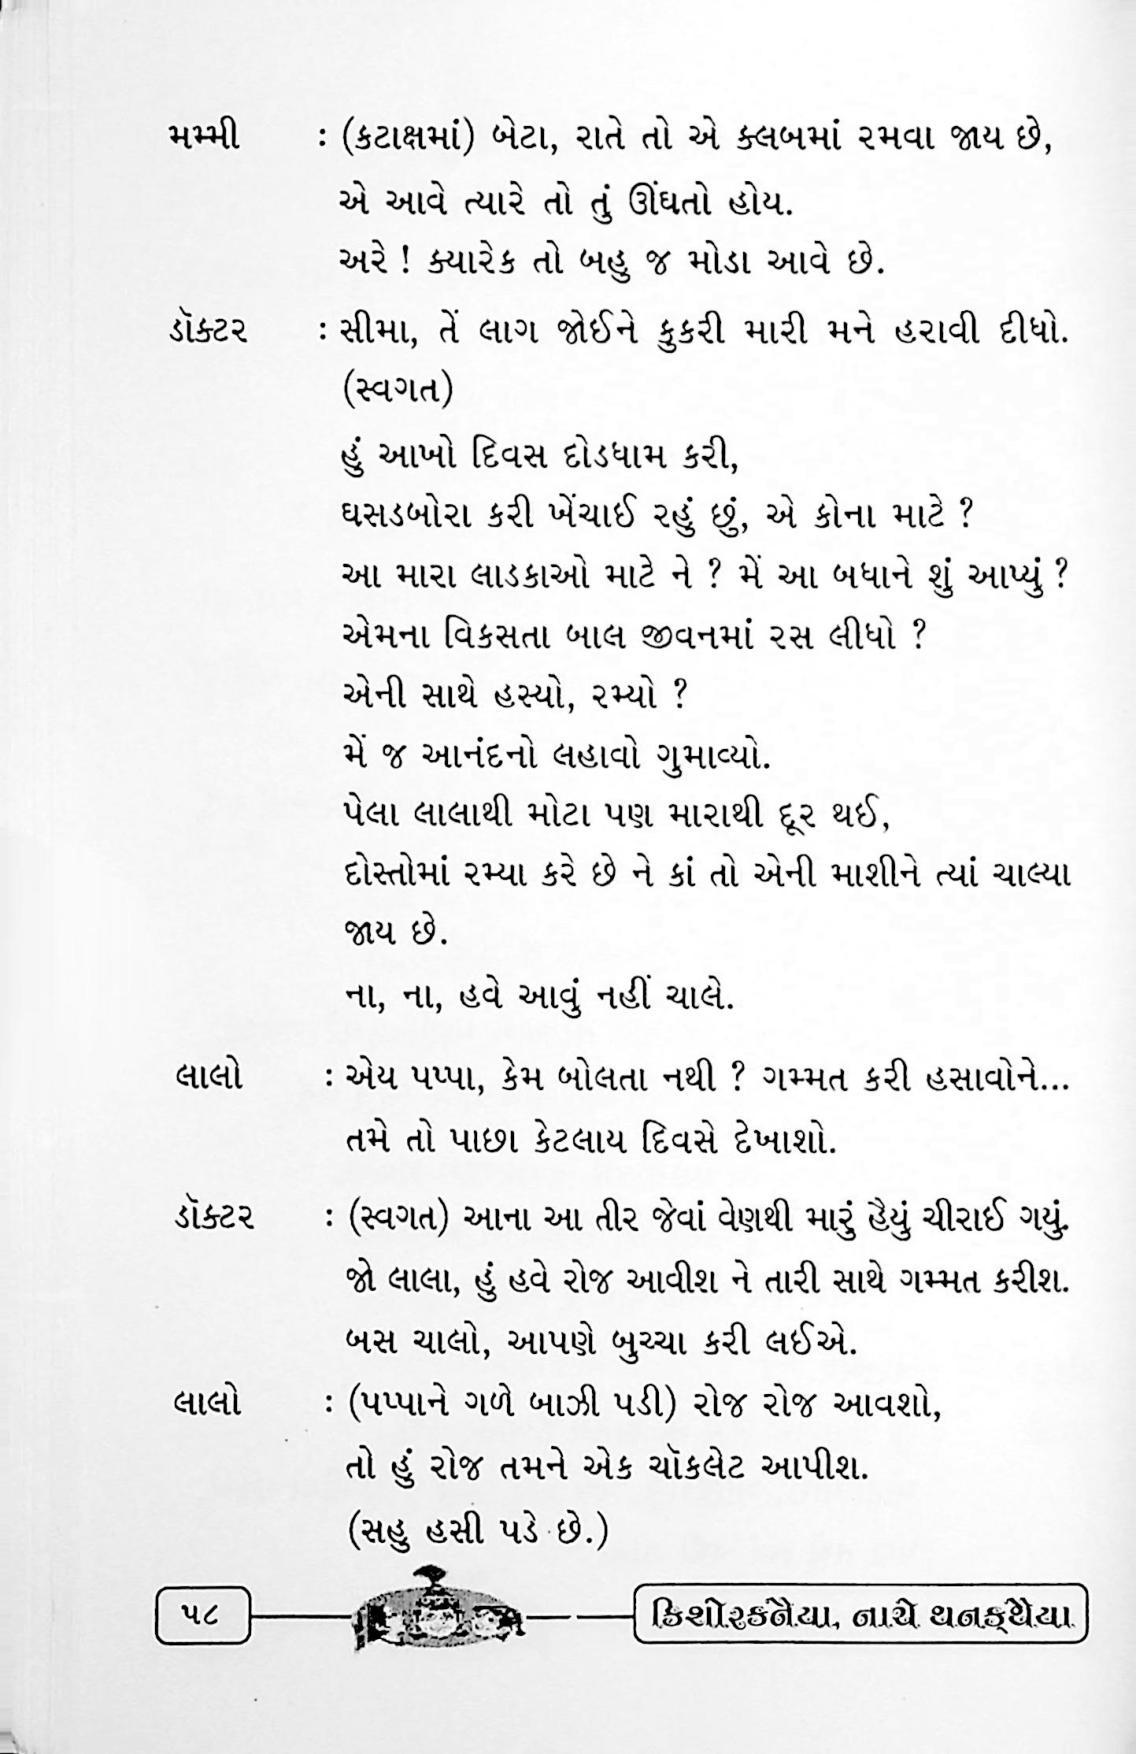 મમ્મી : (કટાક્ષમાં) બેટા, રાતે તો એ ક્લબમાં રમવા જાય છે,
એ આવે ત્યારે તો તું ઊંઘતો હોય.
અરે ! ક્યારેક તો બહુ જ મોડા આવે છે.
ડૉક્ટર : સીમા, તેં લાગ જોઈને કુકરી મારી મને હરાવી દીધો.
(સ્વગત)
હું આખો દિવસ દોડધામ કરી,
ઘસડબોરા કરી ખેંચાઈ રહું છું, એ કોના માટે ?
આ મારા લાડકાઓ માટે ને ? મેં આ બધાને શું આપ્યું ?
એમના વિકસતા બાલ જીવનમાં રસ લીધો ?
એની સાથે હસ્યો, રમ્યો ?
મેં જ આનંદનો લહાવો ગુમાવ્યો.
પેલા લાલાથી મોટા પણ મારાથી દૂર થઈ,
દોસ્તોમાં રમ્યા કરે છે ને કાં તો એની માશીને ત્યાં ચાલ્યા
જાય છે.
ના, ના, હવે આવું નહીં ચાલે.
લાલો : એય પપ્પા, કેમ બોલતા નથી ? ગમ્મત કરી હસાવોને...
તમે તો પાછા કેટલાય દિવસે દેખાશો.
ડૉક્ટર : (સ્વગત) આના આ તીર જેવાં વેણથી મારું હૈયું ચીરાઈ ગયું.
જો લાલા, હું હવે રોજ આવીશ ને તારી સાથે ગમ્મત કરીશ.
બસ ચાલો, આપણે બુચ્ચા કરી લઈએ.
લાલો : (પપ્પાને ગળે બાઝી પડી) રોજ રોજ આવશો,
તો હું રોજ તમને એક ચૉકલેટ આપીશ.
(સહુ હસી પડે છે.)
૫૮ કિશોરકનૈયા, નાચે થનક્‌થૈયા